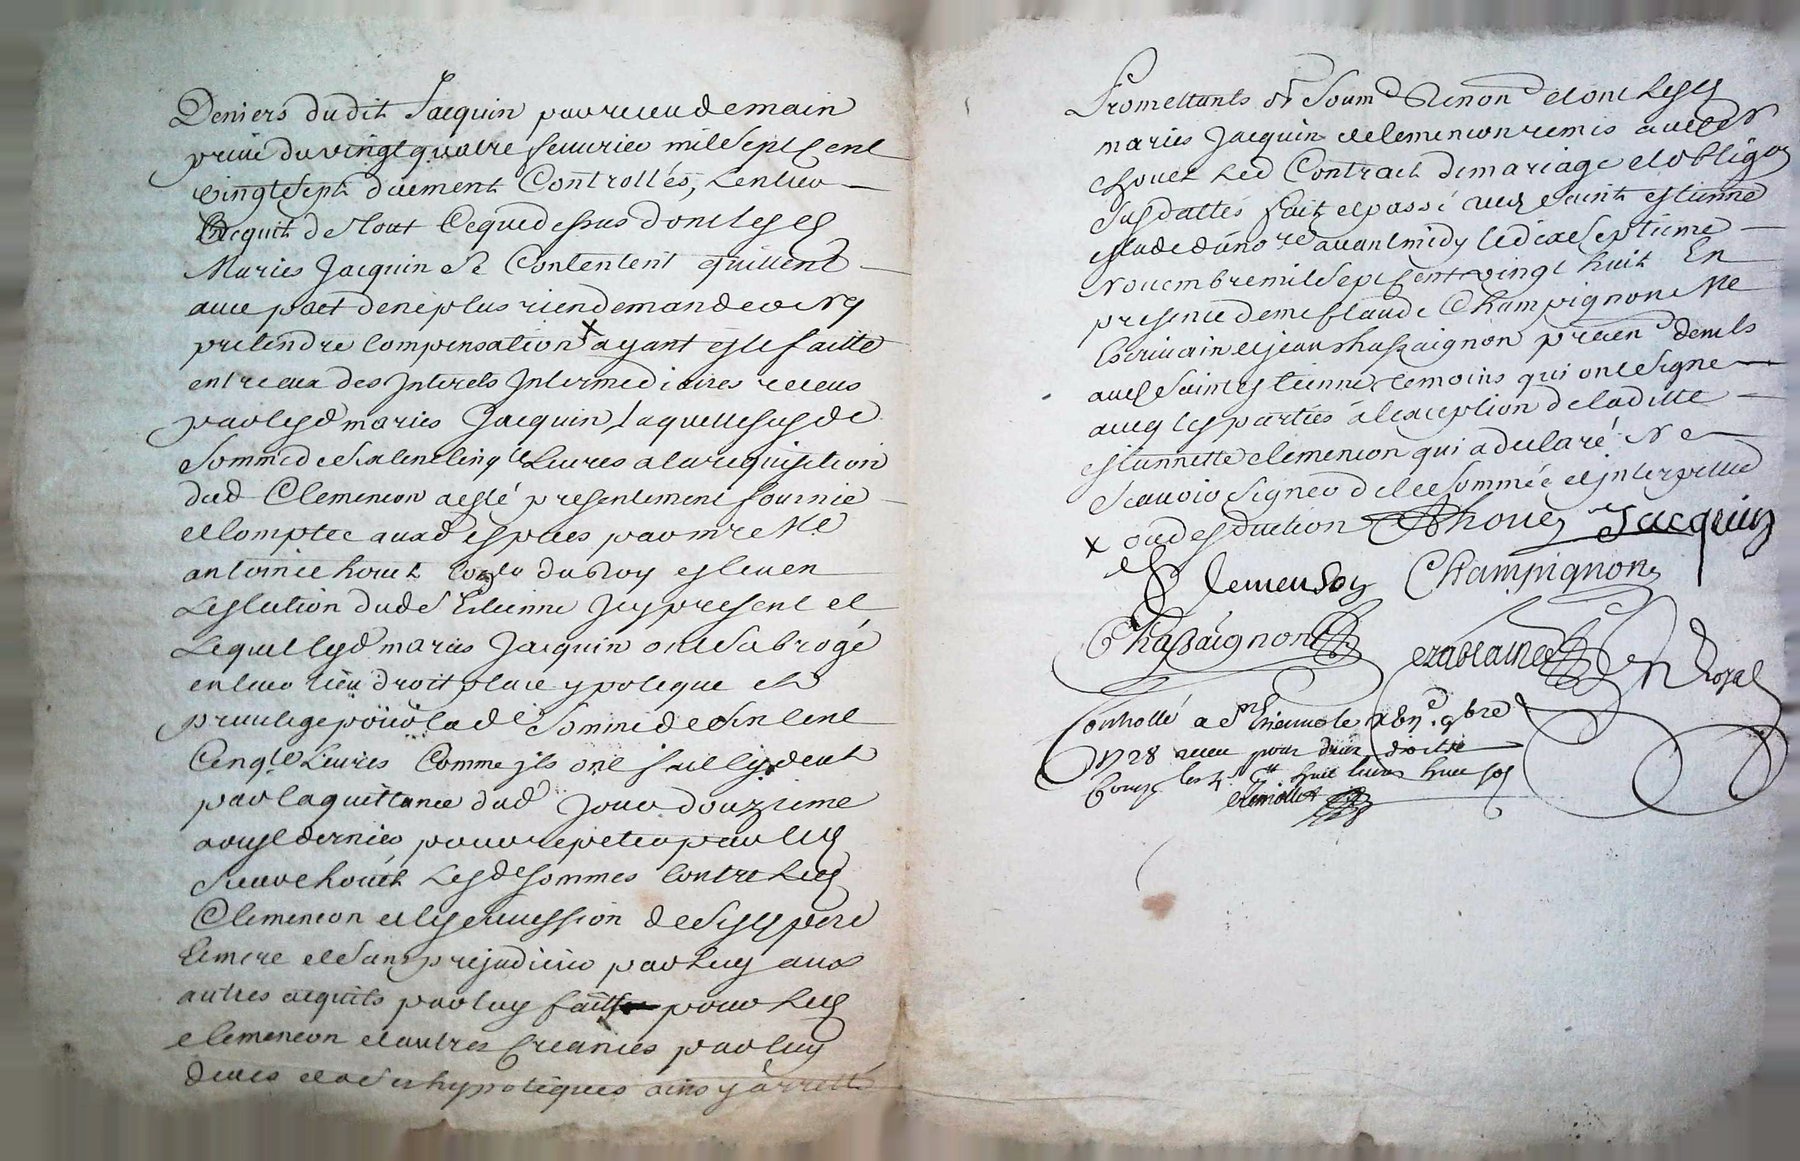 Deniers dudit Jacquin par receu de main
privé du vingt quatre feuurier mil Sept Cent
vingt Sept duement Controllés, Lentier
Acquit de Tout Ceque dessus dont lesd
Maries Jacquin Se Contentent quittent
auec pact dene plus rien demander Ny
pretendre Compensation x ayant este faitte
entre eux des Interets Intermediaires receus
par lesd maries Jacquin, laquelle susde
Somme de Six Cent Cinq Liures a la requisition
dud Clemencon a esté presentement fournie
et Comptee auxd especes par mre Me
antoine houet du Roy esleu en
Leslection dud St Etienne Icy present et
Lequel lesd maries Jacquin ont Subrogé
en leur lieu droit place ypoteque et
priuilege pour lade Somme de Six Cent
Cinq Liures Comme ils ont fait cydeut
par laquittance dud Jour douzieme
aoust dernier pour repeter par led
Sieur houet Lesde Sommes Contre Led
Clemencon et les Sucession de Sesd pere
et mere et Sans prejudicier par Luy aux
autres acquits par luy faits pour Led
Clemencon et autres Creances par luy
deues et a Ses hypoteques ainsy arretté
Promettants &r Soumd Renond et ont Lesd
maries Jacquin et Clemencon remis audt Sr
houet Led Contract de mariage et obligaon
Susdattés fait et passé aud Saint estienne
estude dunore auant midy le dix Septieme
Nouembre mil Sept Cent vingt huit En
presence deme Claude Champignon Me
Ecriuain et jean chassaignon praticn demts
aud Saint Estienne temoins qui ont Signe
aueq les parties a lexception de laditte
estiennette Clemencon qui a declaré Ne
Scauoir Signer de ce Sommée et interpellée
x ou desduction Rhouet Jacquin
Clemenson Champignon
Chassaignon
Royal
Controllé a St Etienne le 9bre
1728 receu pour droitz
huit liures huit sols